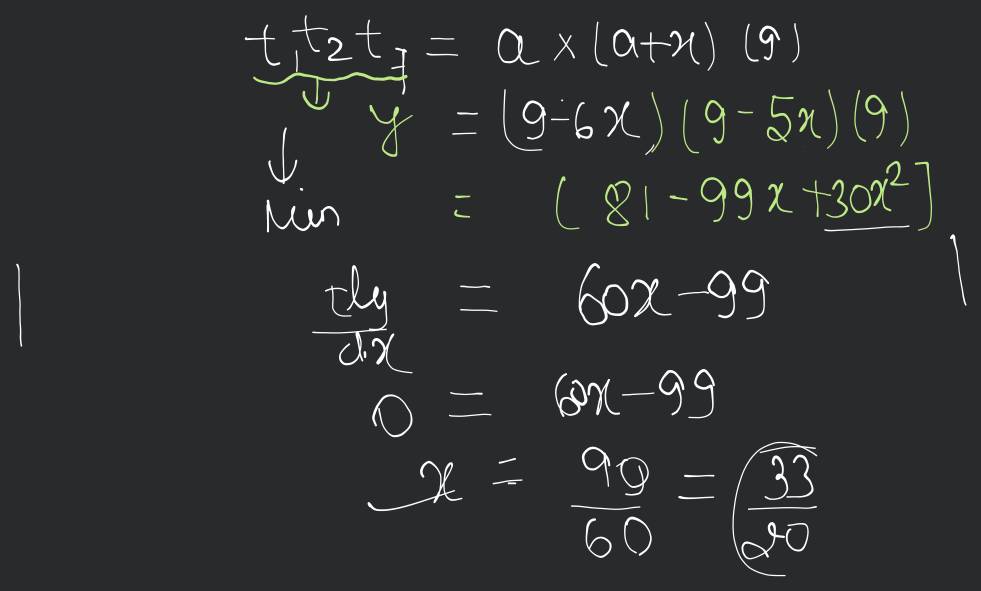 t₁t₂t₇ = a × (a+x) (9)
y = (9-6x) (9-5x) (9)
↓
Min = ( 81 - 99x + 30x² ]
dy/dx = 60x - 99
0 = 60x - 99
x = 99/60 = 33/20